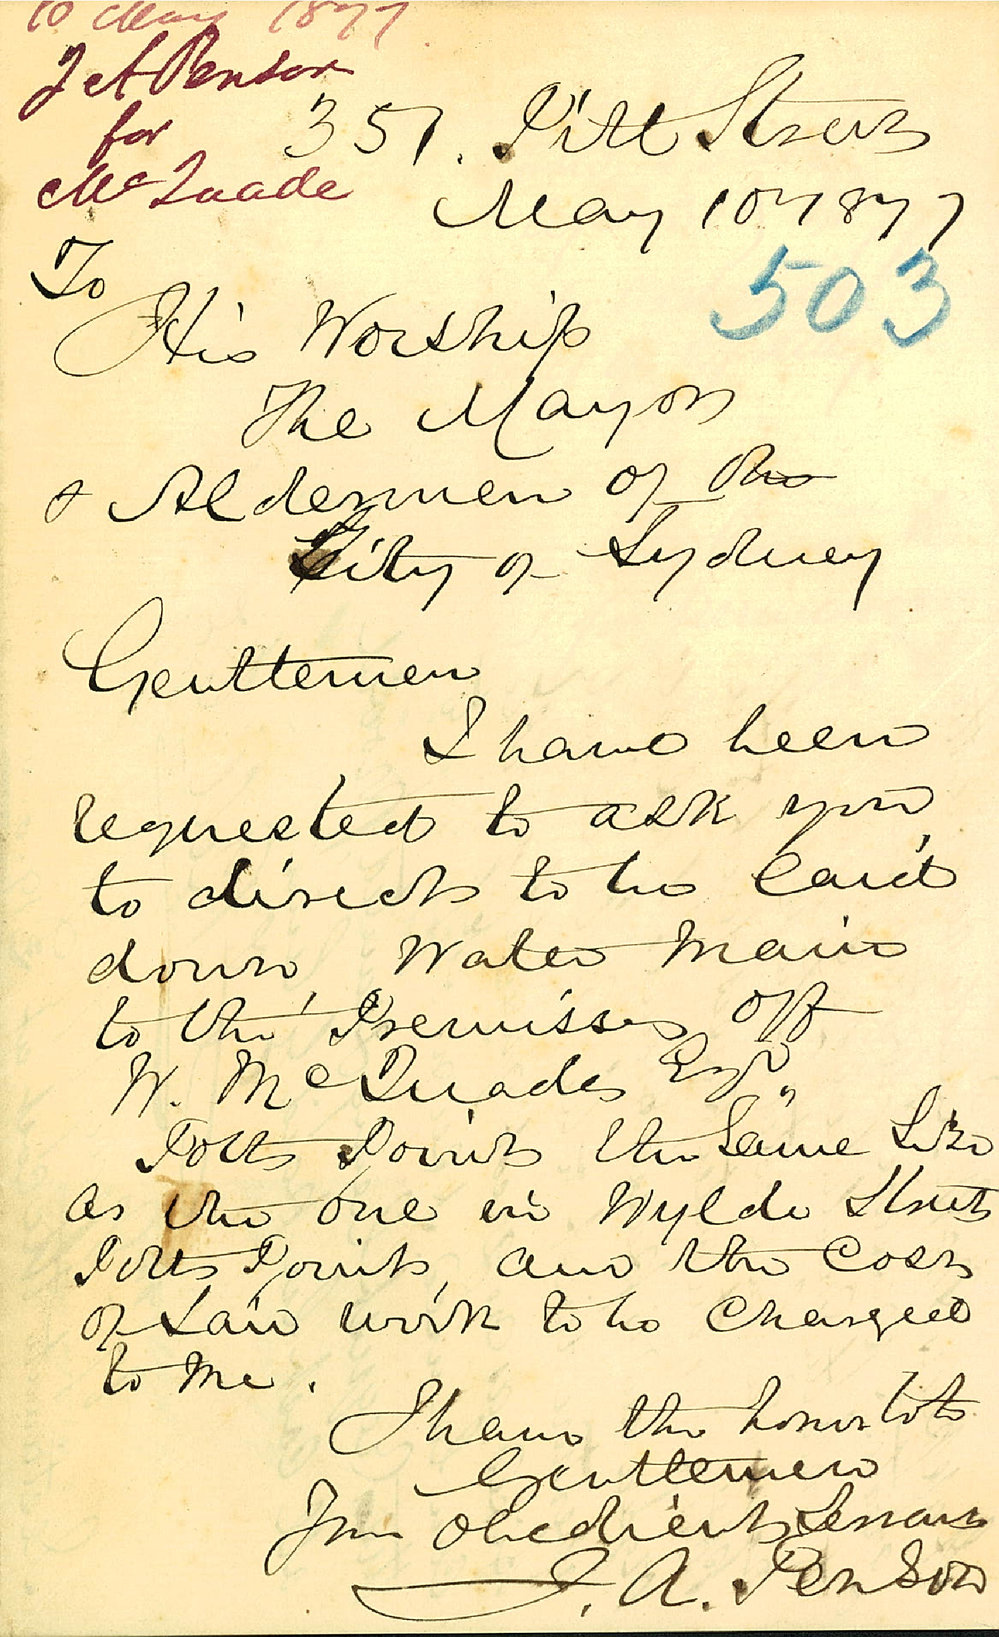 10 May 1877
J A Penson
for
McQuade
351. Pitt Street
May 10th 1877
503
To
His Worship
The Mayor
& Aldermen of the
City of Sydney
Gentlemen
I have been
requested to ask you
to direct to be laid
down Water Main
to the Premisses off
W. McQuade Esqr,
Potts Point the Same Size
as the one in Wylde Street
Potts Point, and the Cost
of Said work to be Charged
to Me.
I have the honor to be
Gentlemen
Your Obedient Servant
J. A. Penson